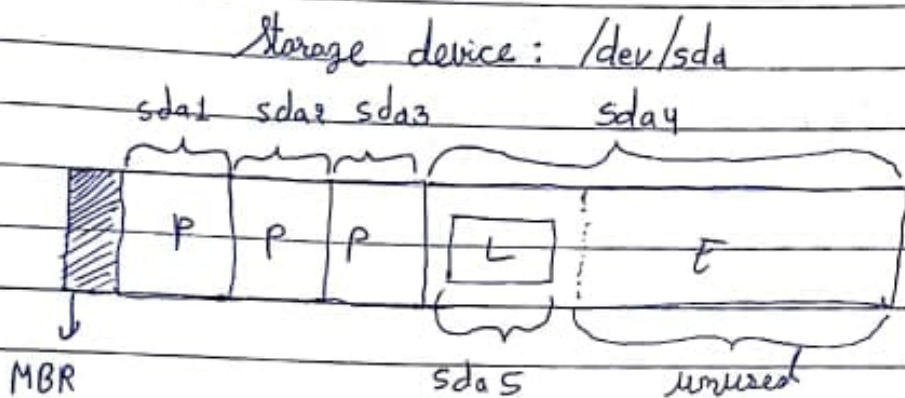 Storage device : /dev/sda
sda1 sda2 sda3 sda4
P P P L E
MBR sda5 unused